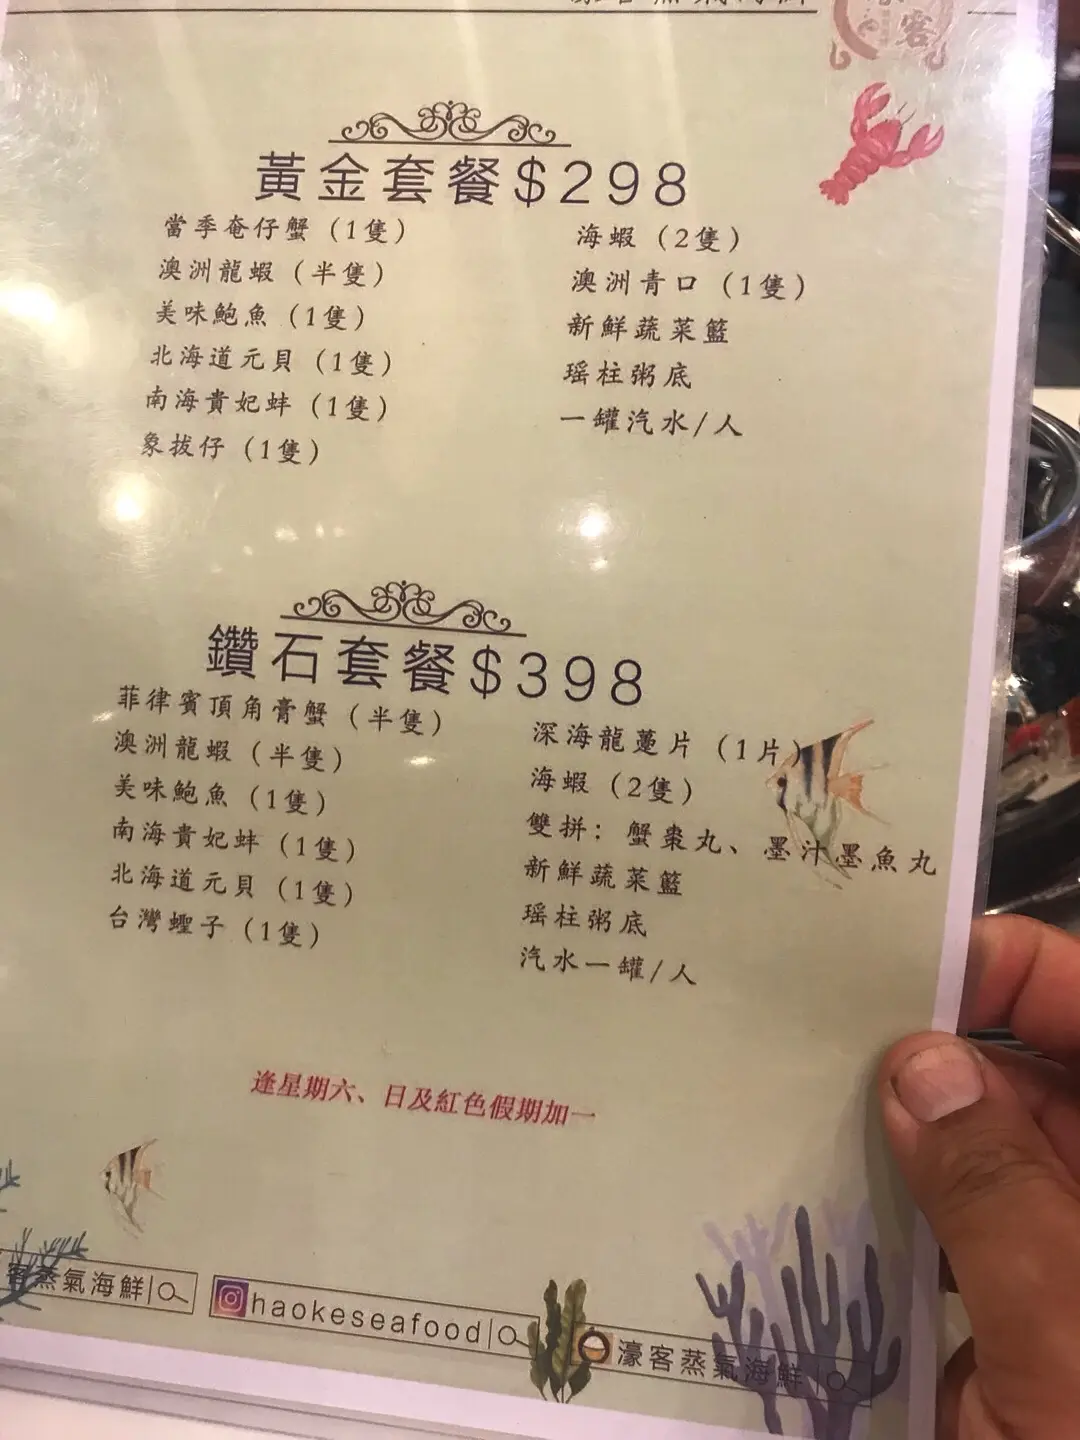 客
黃金套餐$298
當季奄仔蟹（1隻）
澳洲龍蝦（半隻）
美味鮑魚（1隻）
北海道元貝（1隻）
南海貴妃蚌（1隻）
象拔仔（1隻）
海蝦（2隻）
澳洲青口（1隻）
新鮮蔬菜籃
瑶柱粥底
一罐汽水/人
鑽石套餐$398
菲律賓頂角膏蟹（半隻）
澳洲龍蝦（半隻）
美味鮑魚（1隻）
南海貴妃蚌（1隻）
北海道元貝（1隻）
台灣蟶子（1隻）
深海龍躉片（1片）
海蝦（2隻）
雙拼：蟹棗丸、墨汁墨魚丸
新鮮蔬菜籃
瑶柱粥底
汽水一罐/人
逢星期六、日及紅色假期加一
客蒸氣海鮮
haokeseafood
濠客蒸氣海鮮